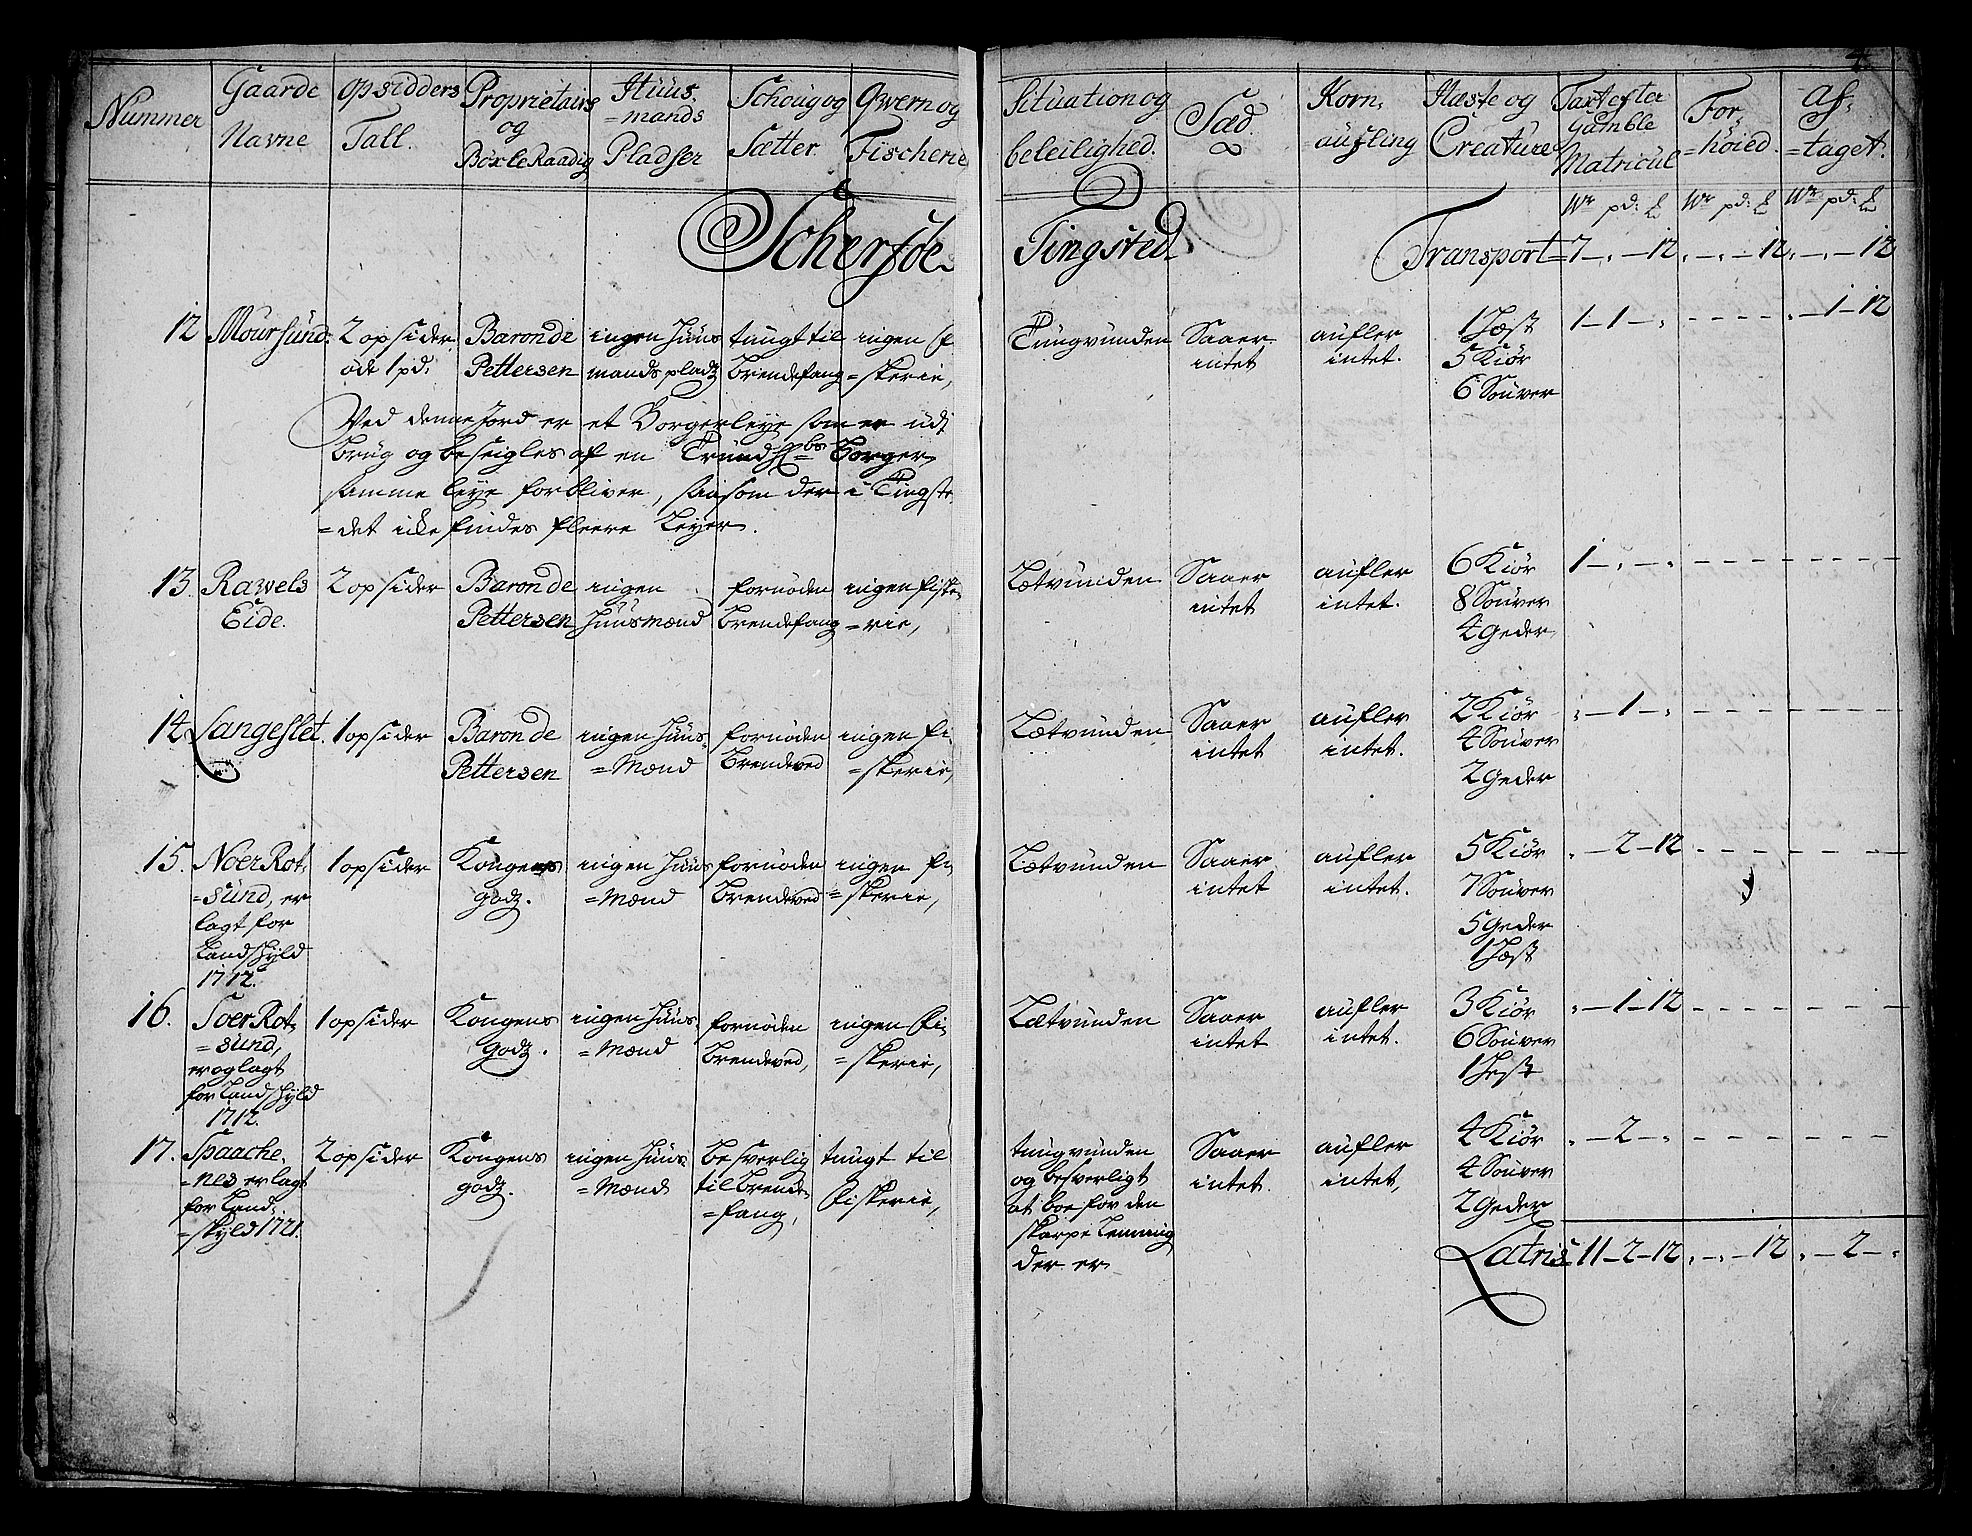 4
Nummer
Gaarde
Navne
Opsidders
Tall.
Proprietairs
og
Böxle Raadig
Huus.
=mands
Pladser
Schoug og
Sætter.
Qwern og
Fischerie
Situation og
beleilighed.
Sæd.
Korn,
aufling
Hæste og
Creature
Taxt efter
Gamble
Matricul
For,
=höied.
Af,
=taget.
Wr pd: Wr pd: Wr pd:
Scherföe
Tingsted.
Transport= 7-,-12. ,-,-12. ,-,-12
12 Moursund: 2 opsider
öde 1 pd:
Baron de
Pettersen
ingen Huus
mands pladz
tungt til
brendefang
ingen fi
=skerie,
Tungvunden
Saaer
intet
aufler
intet.
1 Hæst
5 Kiör
6 Souver
1-1-, - - - - ,-1-12
Ved denne Jord er et Borgerleye som er udi
brug og beseigles af en Trundhbs borger,
samme leye forbliver, saasom der i Tingste
=det icke findes fleere Leyer.
13. Rawels
Eide.
2 opsider
Baron de
Pettersen
ingen
Huusmænd
fornöden
brendefang
ingen fiske
=rie,
Lætvunden
Saaer
intet
aufler
intet.
6 Kiör
8 Souver
4 Geder
1-,-, - - - - - - - -
14. Langeslet.
1 opsider
Baron de
Pettersen
ingen Huus
=Mænd
fornöden
brendeved
ingen fi
=skerie,
Lætvunden
Saaer
intet
aufler
intet.
2 Kiör
4 Souver
2 Geder
,-1-, - - - - - - - -
15. Noer Rot
=sund, er
lagt for
Landskyld
1712.
1 opsider
Kongens
godz.
ingen Huus
=Mænd
fornöden
brendeved
ingen fi
=skerie,
Lætvunden
Saaer
intet
aufler
intet.
5 Kiör
7 Souver
5 Geder
1 Hæst
,-2-12 - - - - - - - -
16. Soer Rot
=sund,
er og lagt
for Landskyld
1712.
1 opsider
Kongens
godz.
ingen Huus
=Mænd
fornöden
brendeved,
ingen fi
=skerie,
Lætvunden
Saaer
intet
aufler
intet.
3 Kiör
6 Souver
1 Hest
,-1-12 - - - - - - - -
17. Spaache
=nes er lagt
for Land:
=skyld 1721.
2 opsider
Kongens
godz.
ingen Huus
=Mænd
besverlig
til brende
=fang,
tungt til
fiskerie,
tungvunden
og besverligt
at boe for den
skarpe
der er
Saaer
intet.
aufler
intet,
4 Kiör
4 Souver
2 Geder
,-2-, - - - - - - - -
Latris 11-2-12. ,-,-12. ,-2-,